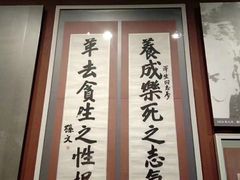 養成樂死之志氣
革去貪生之性根
孫文